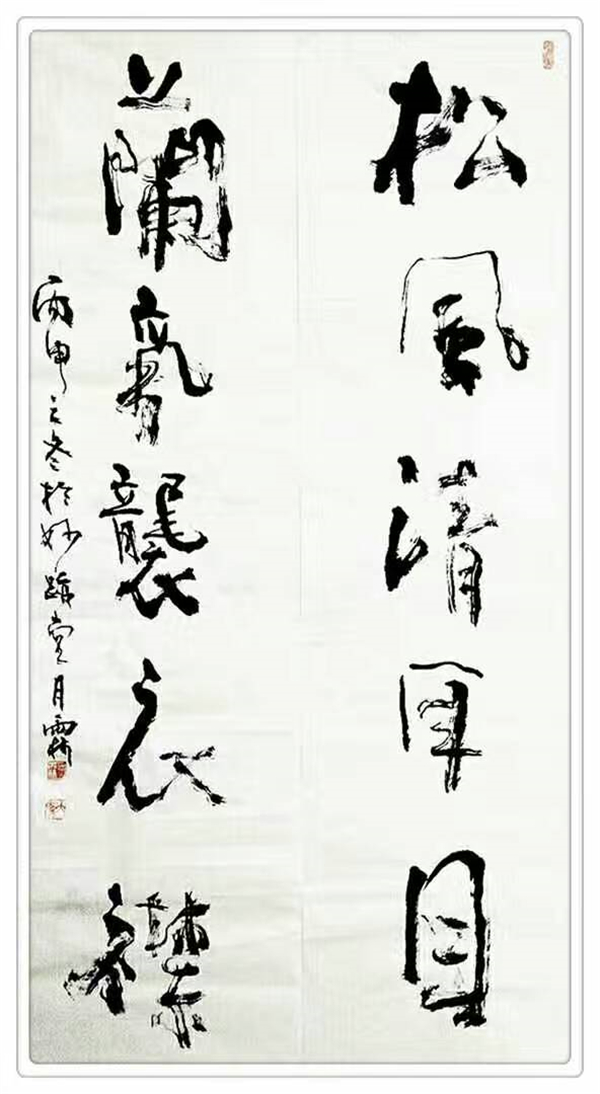 松風清耳目
蘭氣襲衣襟
丙申之冬於妙跡堂月霖